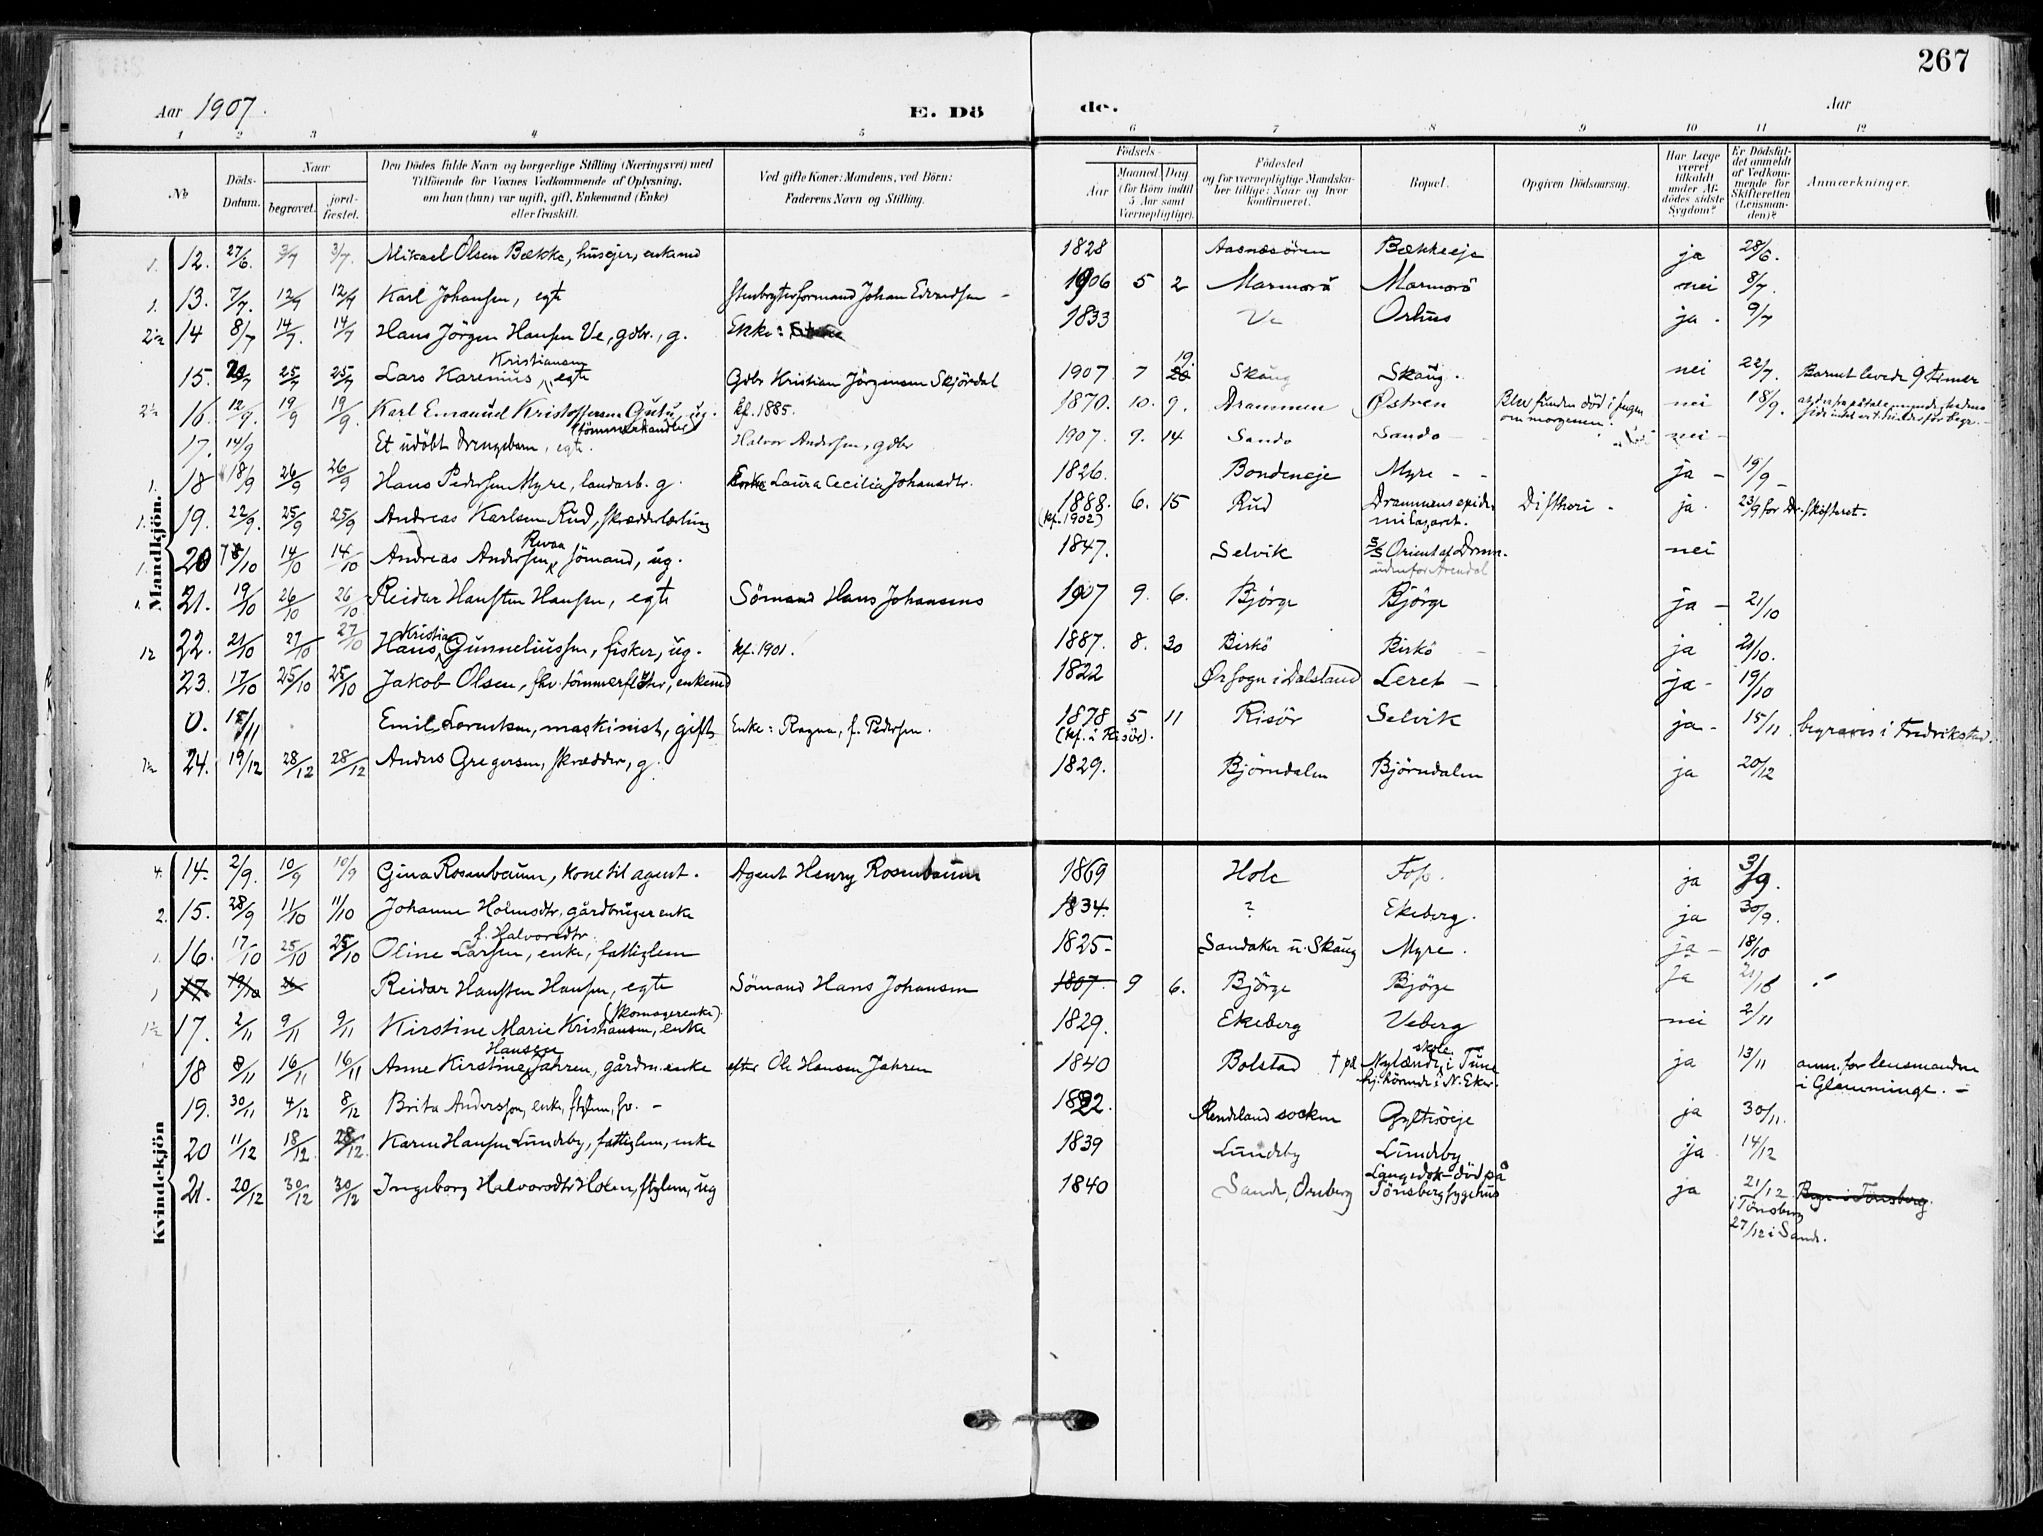 267
Aar 1907. E. Döde. Aar
1 2 3 4 5 6 7 8 9 10 11 12
No. Döds-Datum. Naar begravet. jordfæstet. Den Dödes fulde Navn og borgerlige Stilling (Næringsvei) med Tilföiende for Voxnes Vedkommende af Oplysning, om han (hun) var ugift, gift, Enkemand (Enke) eller fraskilt. Ved gifte Koner: Mandens, ved Börn: Faderens Navn og Stilling. Födsels- Aar Maaned Dag (for Börn indtil 5 Aar samt Værnepligtige). Födested og for værnepligtige Mandskaber tillige: Naar og hvor konfirmeret. Bopæl. Opgiven Dödsaarsag. Har Læge været tilkaldt under Afdödes sidste Sygdom? Er Dödsfaldet anmeldt af Vedkommende for Skifteretten (Lensmanden)? Anmærkninger.
Mandkjön.
1. 12. 27/6. 3/7 3/7. Mikael Olsen Bække, husejer, enkemd 1828 Aasnæsören Bækkeeje ja 28/6.
1. 13. 7/7. 12/7 12/7 Karl Johansen, egte Stenbryterformand Johan Edvardsen 1906 5 2 Marmorö Marmorö nei 8/7.
2 1/2 14 8/7 14/7. 14/7 Hans Jörgen Hansen Ve, gdbr., g. Enke: 1833 Ve Orhus ja. 9/7
15. 20/7 25/7 25/7 Lars Karenius Kristiansen, egte Gdbr Kristian Jörgensen Skjördal 1907 7 19 Skaug Skaug. nei 22/7. Barnet levede 9 timer
2 1/2 16. 12/9. 19/9 19/9. Karl Emanuel Kristoffersen Gutu, ug. (tömmerhandler) kf. 1885. 1870. 10. 9. Drammen Østren Blev funden död i sengen om morgenen. nei 18/9.
17. 14/9 Et udöbt drengebarn, egte. Halvor Andersen, gdbr 1907. 9. 14 Sando Sando nei
1. 18 18/9 26/9 26/9 Hans Pedersen Myre, landarb. g. Enke Laura Cecilia Johansdtr. 1826. Bondeneje Myre ja 19/9
1. 19. 22/9. 25/9 25/9 Andreas Karlsen Rud, skrædderlærling 1888. 6. 15 (kf. 1902) Rud Drammens epidemilazaret. Diftheri ja. 23/9 for Dr. skifteret.
1. 20 /10 14/10 14/10 Andreas Andersen Revaa sömand, ug. 1847. Selvik S/S Orient af Dram. udenfor Arendal nei
1. 21. 19/10 26/10 26/10 Reidar Hansten Hansen, egte Sömand Hans Johansens 1907 9. 6. Björge Björge ja 21/10
1 1/2 22. 21/10 27/10 27/10 Hans Kristian Gunneliussen, fisker, ug. kf. 1901. 1887. 8. 30 Birkö Birkö ja 21/10.
23. 17/10 25/10 25/10 Jakob Olsen, fhv. tömmerflöter, enkemd 1822 Ør sogn i Dalsland Leret ja 19/10
0. 15/11 Emil Lorentsen, maskinist, gift Enke: Ragna, f. Pedersen. 1878 5 11 (kf. i Risör). Risör Selvik ja 15/11 begraves i Fredrikstad.
1 1/2 24. 19/12 28/12 28/12 Anders Gregersen, skrædder, g. 1829. Björndalen Björndalen ja 20/12
Kvindekjön
4. 14. 2/9. 10/9 10/9 Gina Rosenbaum, kone til agent. Agent Henry Rosenbaum 1869 Hole Fos. ja 3/9.
2. 15. 28/9 11/10 11/10 Johanne Holmsdtr, gårdbruger enke 1834. ? Ekeberg. ja 30/9.
1. 16. 17/10 25/10 25/10 Oline Larsen, f. Halvorsdtr. enke, fattiglem 1825 Sandaker u. Skaug Myre. ja 18/10
1 17. 19/10 26 Reidar Hansten Hansen, egte Sömand Hans Johansen 1907 9 6. Björge Björge ja 21/10
1 1/2 17. 2/11 9/11 9/11 Kirstine Marie Kristiansen, (skomagerenke) enke 1829. Ekeberg Veberg nei 2/11
18 8/11 16/11 16/11 Anne Kirstine Hansen Jahren, gårdm. enke efter Ole Hansen Jahren 1840 Bolstad † på Nylænde skole i Tune hj. hörende i N. Eker. ja 13/11 anm. for lensmanden i Glemminge.
19. 30/11 4/12 8/12 Brita Andersson, enke, ftglem, sv. 1822. Rendeland socken Gyltsöeje ja 30/11.
20 11/12 18/12. 28/12. Karen Hansen Lundby, fattiglem, enke 1839 Lundby Lundby ja 14/12
21. 20/12 30/12 30/12 Ingeborg Halvorsdtr Holen, ftglem, ug 1840 Sande, Oreberg Langedok död på Tönsberg sygehus ja 21/12 i Tönsberg 27/12 i Sande. Begr. i Tönsberg.